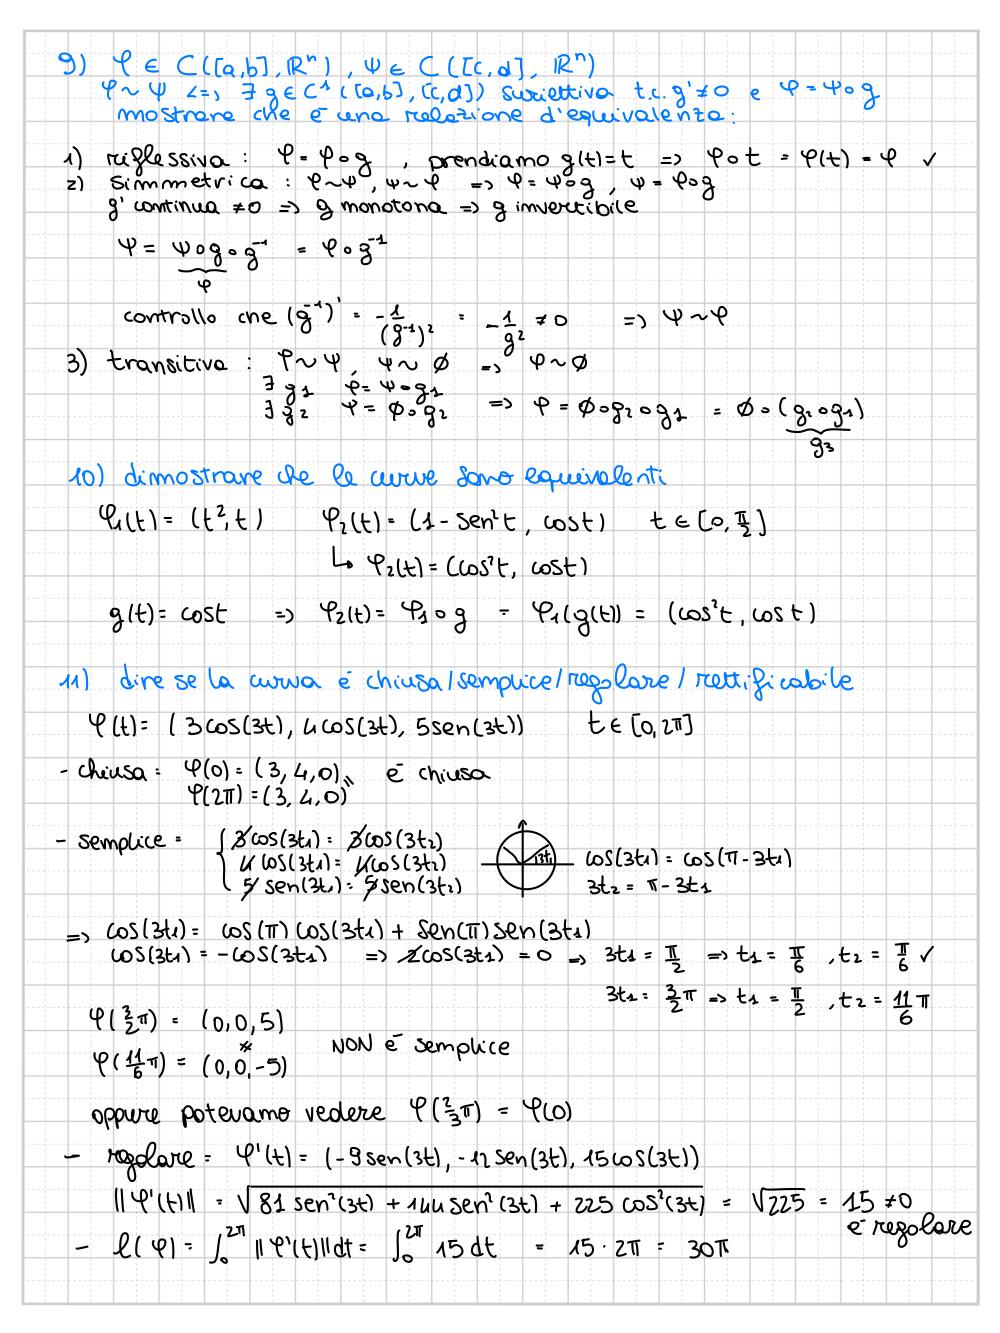 9) φ ∈ C([a,b], ℝⁿ), ψ ∈ C([c,d], ℝⁿ)
φ ~ ψ <=> ∃ g ∈ C¹([a,b],[c,d]) suriettiva t.c. g' ≠ 0 e φ = ψ∘g
mostrare che è una relazione d'equivalenza:
1) riflessiva : φ = φ∘g , prendiamo g(t)=t => φ∘t = φ(t) = φ ✓
2) simmetrica : φ~ψ, ψ~φ => φ = ψ∘g , ψ = φ∘g
g' continua ≠0 => g monotona => g invertibile
ψ = ψ∘g∘g⁻¹ = φ∘g⁻¹
φ
controllo che (g⁻¹)' = -1/(g⁻¹)² = -1/g² ≠ 0 => ψ~φ
3) transitiva : φ~ψ, ψ~ø => φ~ø
∃ g₁ φ = ψ∘g₁
∃ g₂ ψ = ø∘g₂ => φ = ø∘g₂∘g₁ = ø∘(g₂∘g₁)
g₃
10) dimostrare che le curve sono equivalenti
φ₁(t) = (t², t) φ₂(t) = (1 - sen²t, cost) t ∈ [0, π/2]
↳ φ₂(t) = (cos²t, cost)
g(t) = cost => φ₂(t) = φ₁∘g = φ₁(g(t)) = (cos²t, cost)
11) dire se la curva è chiusa/semplice/regolare/rettificabile
φ(t) = (3cos(3t), 4cos(3t), 5sen(3t)) t ∈ [0,2π]
- chiusa: φ(0) = (3,4,0) è chiusa
φ(2π) = (3,4,0)
- semplice = { 3cos(3t₁) = 3cos(3t₂)
4cos(3t₁) = 4cos(3t₂) 3t₁ cos(3t₁) = cos(π-3t₁)
5sen(3t₁) = 5sen(3t₂) 3t₂ = π-3t₁
=> cos(3t₁) = cos(π)cos(3t₁) + sen(π)sen(3t₁)
cos(3t₁) = -cos(3t₁) => 2cos(3t₁) = 0 => 3t₁ = π/2 => t₁ = π/6 , t₂ = π/6 ✓
3t₁ = 3/2 π => t₁ = π/2 , t₂ = 11/6 π
φ(3/2 π) = (0,0,5)
≠ NON è semplice
φ(11/6 π) = (0,0,-5)
oppure potevamo vedere φ(2/3 π) = φ(0)
- regolare = φ'(t) = (-9sen(3t), -12sen(3t), 15cos(3t))
||φ'(t)|| = √(81 sen²(3t) + 144 sen²(3t) + 225 cos²(3t)) = √225 = 15 ≠0
è regolare
- l(φ) = ∫₀^2π ||φ'(t)||dt = ∫₀^2π 15 dt = 15 · 2π = 30π